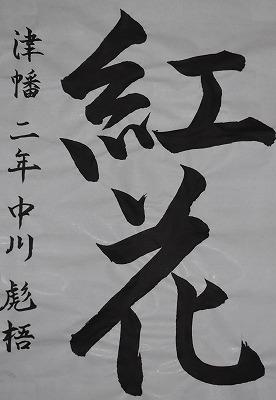 紅花
津幡 二年 中川 彪梧